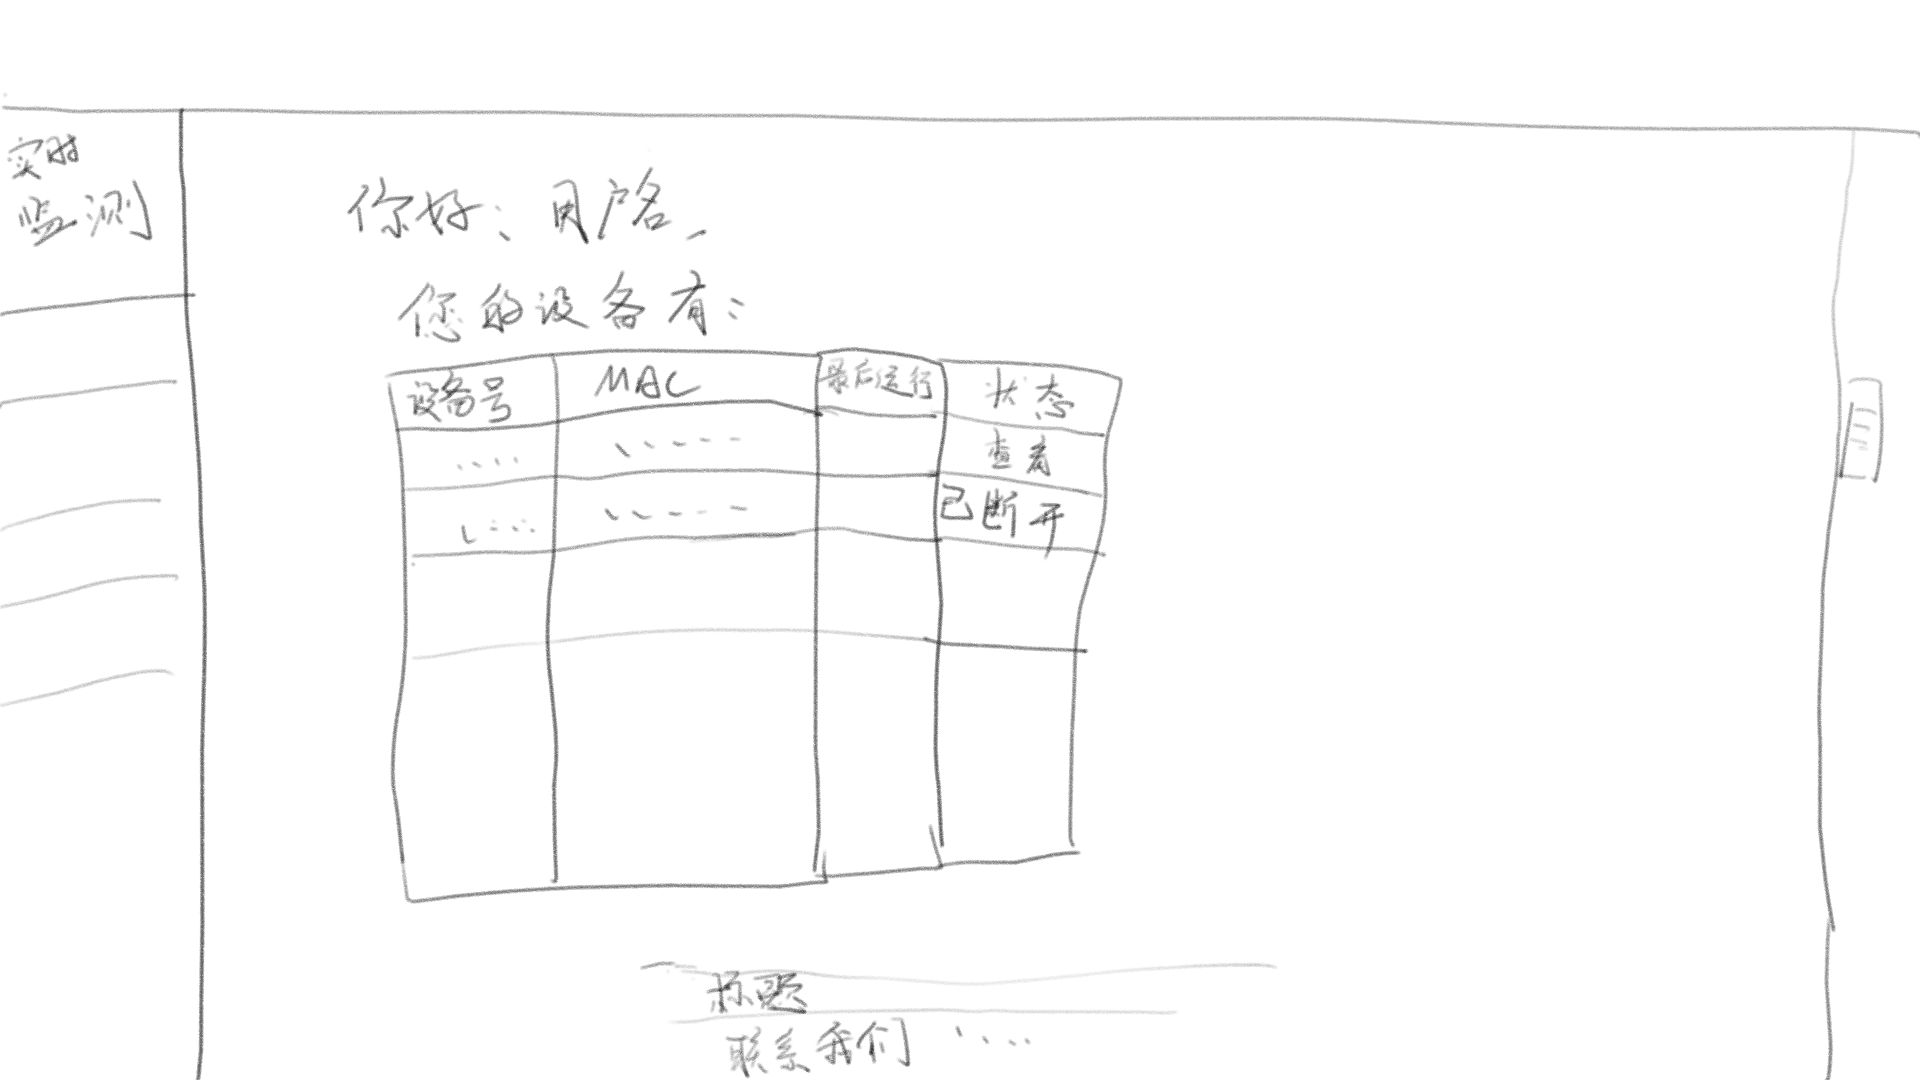 实时
监测
你好：用户名，
您的设备有：
设备号 MAC 最后运行 状态
..... ..... 查看
..... ..... 已断开
标题
联系我们 .....